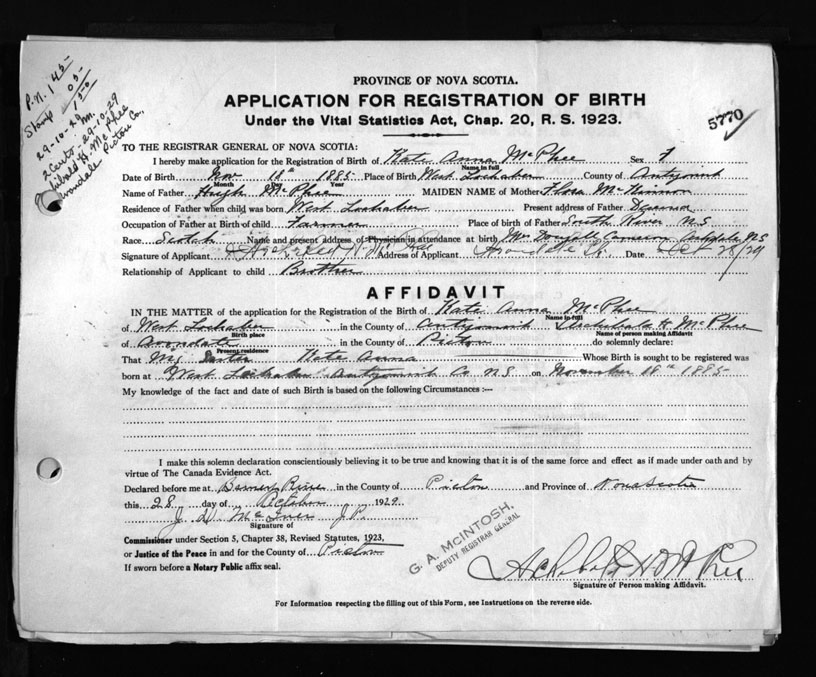 P.N. 1 45-
Stamp 05-
1.50
29-10-29
2 Certs. 29-10-29
Avondale Pictou Co.
PROVINCE OF NOVA SCOTIA.
APPLICATION FOR REGISTRATION OF BIRTH
Under the Vital Statistics Act, Chap. 20, R. S. 1923.
5770
TO THE REGISTRAR GENERAL OF NOVA SCOTIA:
I hereby make application for the Registration of Birth of Kate Anna McPhee Sex F
Name in full
Date of Birth Nov 18th 1885 Place of Birth West Lochaber County of Antigonish
Month Day Year
Name of Father Hugh McPhee MAIDEN NAME of Mother Flora McKinnon
Residence of Father when child was born West Lochaber Present address of Father Deceased
Occupation of Father at Birth of child Farmer Place of birth of Father South River N.S
Race Scotch Name and present address of Physician in attendance at birth Mrs Dougall Cameron N S
Signature of Applicant Address of Applicant Avondale Date Oct 28/29
Relationship of Applicant to child Brother
AFFIDAVIT
IN THE MATTER of the application for the Registration of Birth of Kate Anna McPhee
Name in full
of West Lochaber in the County of Antigonish Archibald H McPhee
Birth place Name of person making Affidavit
of Avondale in the County of Pictou do solemnly declare:
Present residence
That My Sister Kate Anna Whose Birth is sought to be registered was
born at West Lochaber Antigonish Co N.S on November 18th 1885
My knowledge of the fact and date of such Birth is based on the following Circumstances :—
I make this solemn declaration conscientiously believing it to be true and knowing that it is of the same force and effect as if made under oath and by
virtue of The Canada Evidence Act.
Declared before me at Barneys River in the County of Pictou and Province of Nova Scotia
this 28 day of October 1929
J. D. J.P.
Signature of
Commissioner under Section 5, Chapter 38, Revised Statutes, 1923,
or Justice of the Peace in and for the County of Pictou
If sworn before a Notary Public affix seal.
G. A. McINTOSH,
DEPUTY REGISTRAR GENERAL
Archibald H McPhee
Signature of Person making Affidavit.
For Information respecting the filling out of this Form, see Instructions on the reverse side.